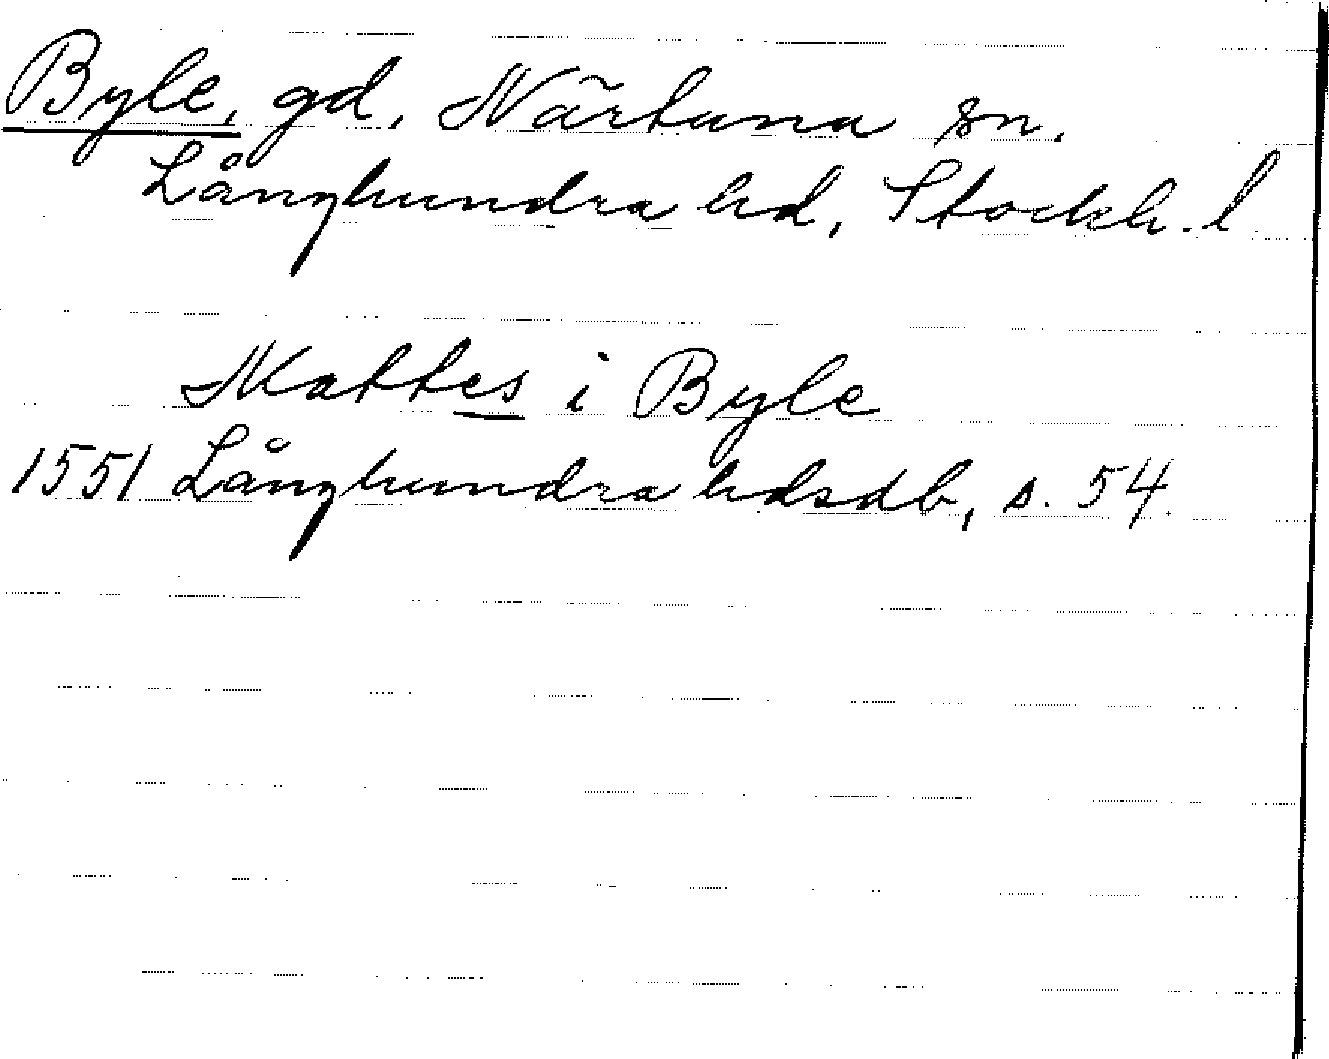 Byle, gd, Närtuna sn.
Långhundra hd, Stockh. l
Mattes i Byle
1551 Långhundra hdsdb, s. 54.